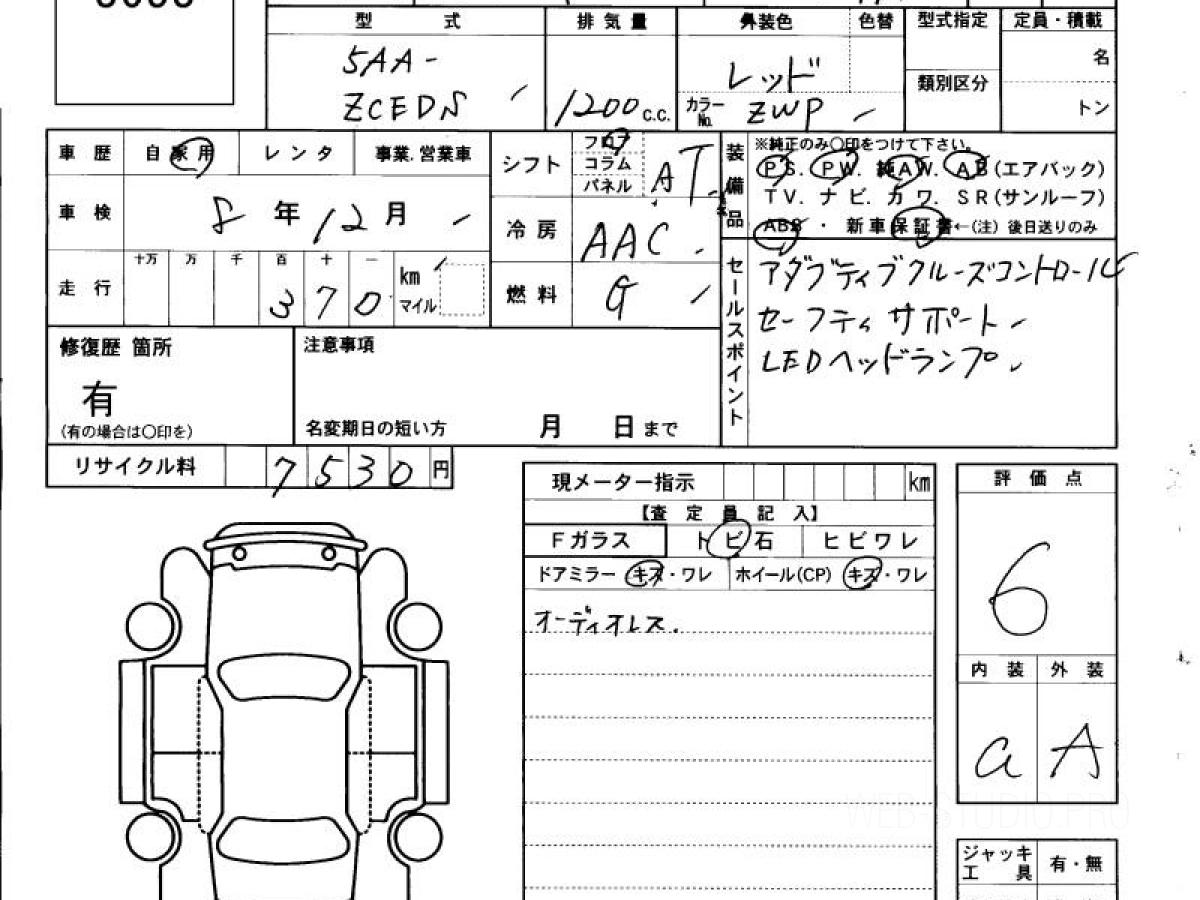 型 式
排 気 量
外装色
色替
型式指定
定員・積載
5AA-
ZCEDS
1200 c.c.
レッド
カラーNo. ZWP
類別区分
名
トン
車 歴
自家用
レンタ
事業.営業車
シフト
フロア
コラム
パネル
AT
装備品
※純正のみ〇印をつけて下さい。
PS. PW. 純AW. AB(エアバック)
TV. ナビ. カワ. SR(サンルーフ)
ABS ・ 新車保証書←(注) 後日送りのみ
車 検
8 年 12 月
冷 房
AAC
走 行
十万 万 千 百 十 一
3 7 0
km
マイル
燃 料
G
セールスポイント
アダプティブクルーズコントロール
セーフティサポート
LEDヘッドランプ
修復歴 箇所
有
(有の場合は〇印を)
注意事項
名変期日の短い方 月 日まで
リサイクル料 7530円
現メーター指示 km
【査 定 員 記 入】
Fガラス トビ石 ヒビワレ
ドアミラー キズ・ワレ ホイール(CP) キズ・ワレ
オーディオレス.
評 価 点
6
内 装 外 装
a A
WEB-STUDIO.PRO
ジャッキ
工 具
有・無